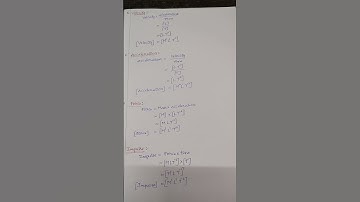 Velocity:
Velocity = Displacement
Time
= [L]
[T]
= [L T⁻¹]
[Velocity] = [M⁰ L T⁻¹]
Acceleration:
Acceleration = Velocity
Time
= [L T⁻¹]
[T]
= [L T⁻²]
[Acceleration] = [M⁰ L T⁻²]
Force:
Force = Mass × acceleration
= [M] × [L T⁻²]
= [M L T⁻²]
[Force] = [M¹ L¹ T⁻²]
Impulse:
Impulse = Force × Time
= [M L T⁻²] × [T]
= [M L T⁻¹]
[Impulse] = [M¹ L¹ T⁻¹]